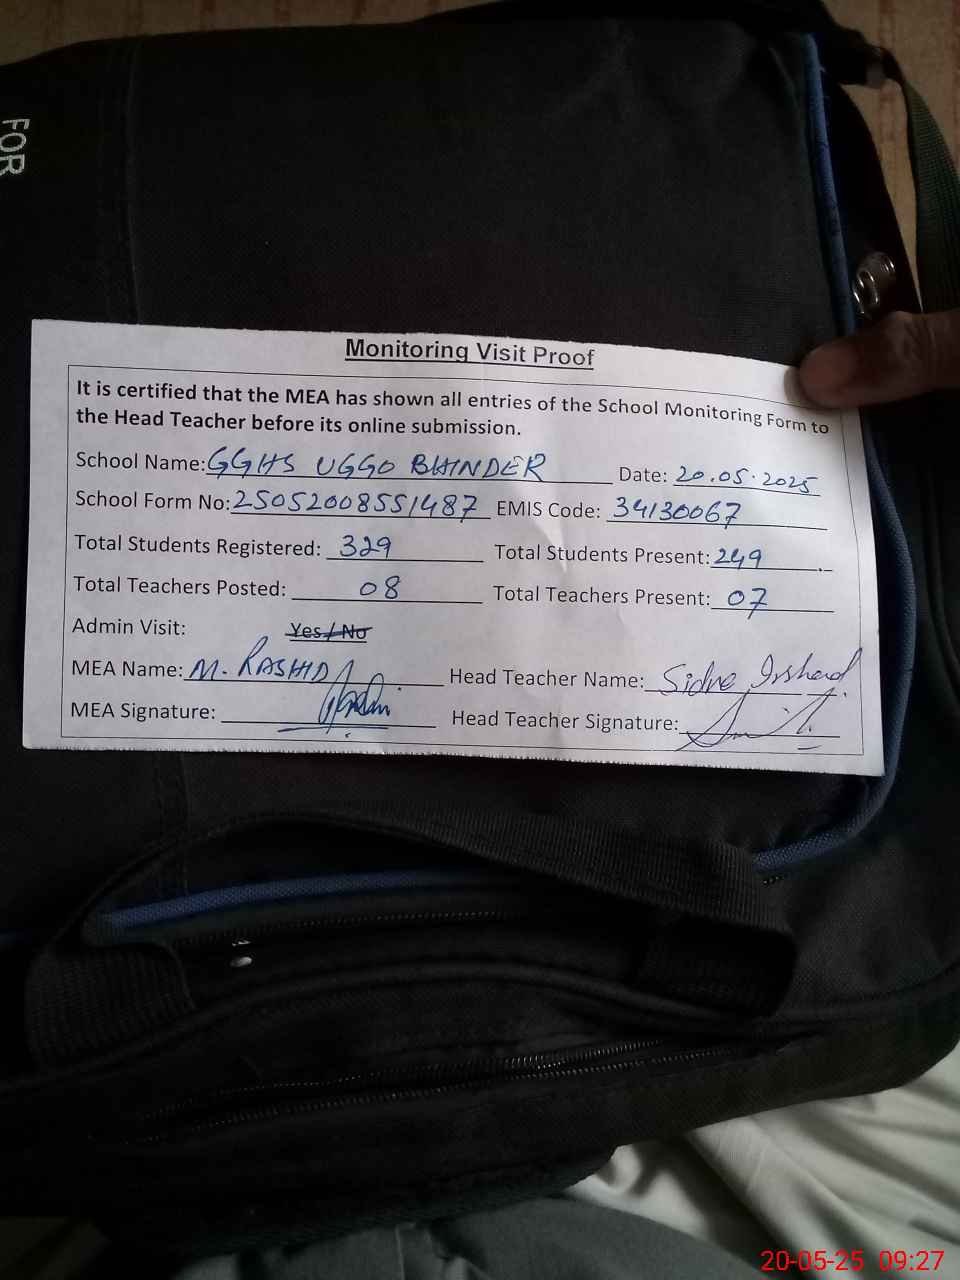 FOR
Monitoring Visit Proof
It is certified that the MEA has shown all entries of the School Monitoring Form to
the Head Teacher before its online submission.
School Name: GGHS UGGO BHINDER Date: 20.05.2025
School Form No: 25052008551487 EMIS Code: 34130067
Total Students Registered: 329 Total Students Present: 249
Total Teachers Posted: 08 Total Teachers Present: 07
Admin Visit: Yes / No
MEA Name: M. RASHID Head Teacher Name: Sidra Irshad
MEA Signature: Head Teacher Signature:
20-05-25 09:27